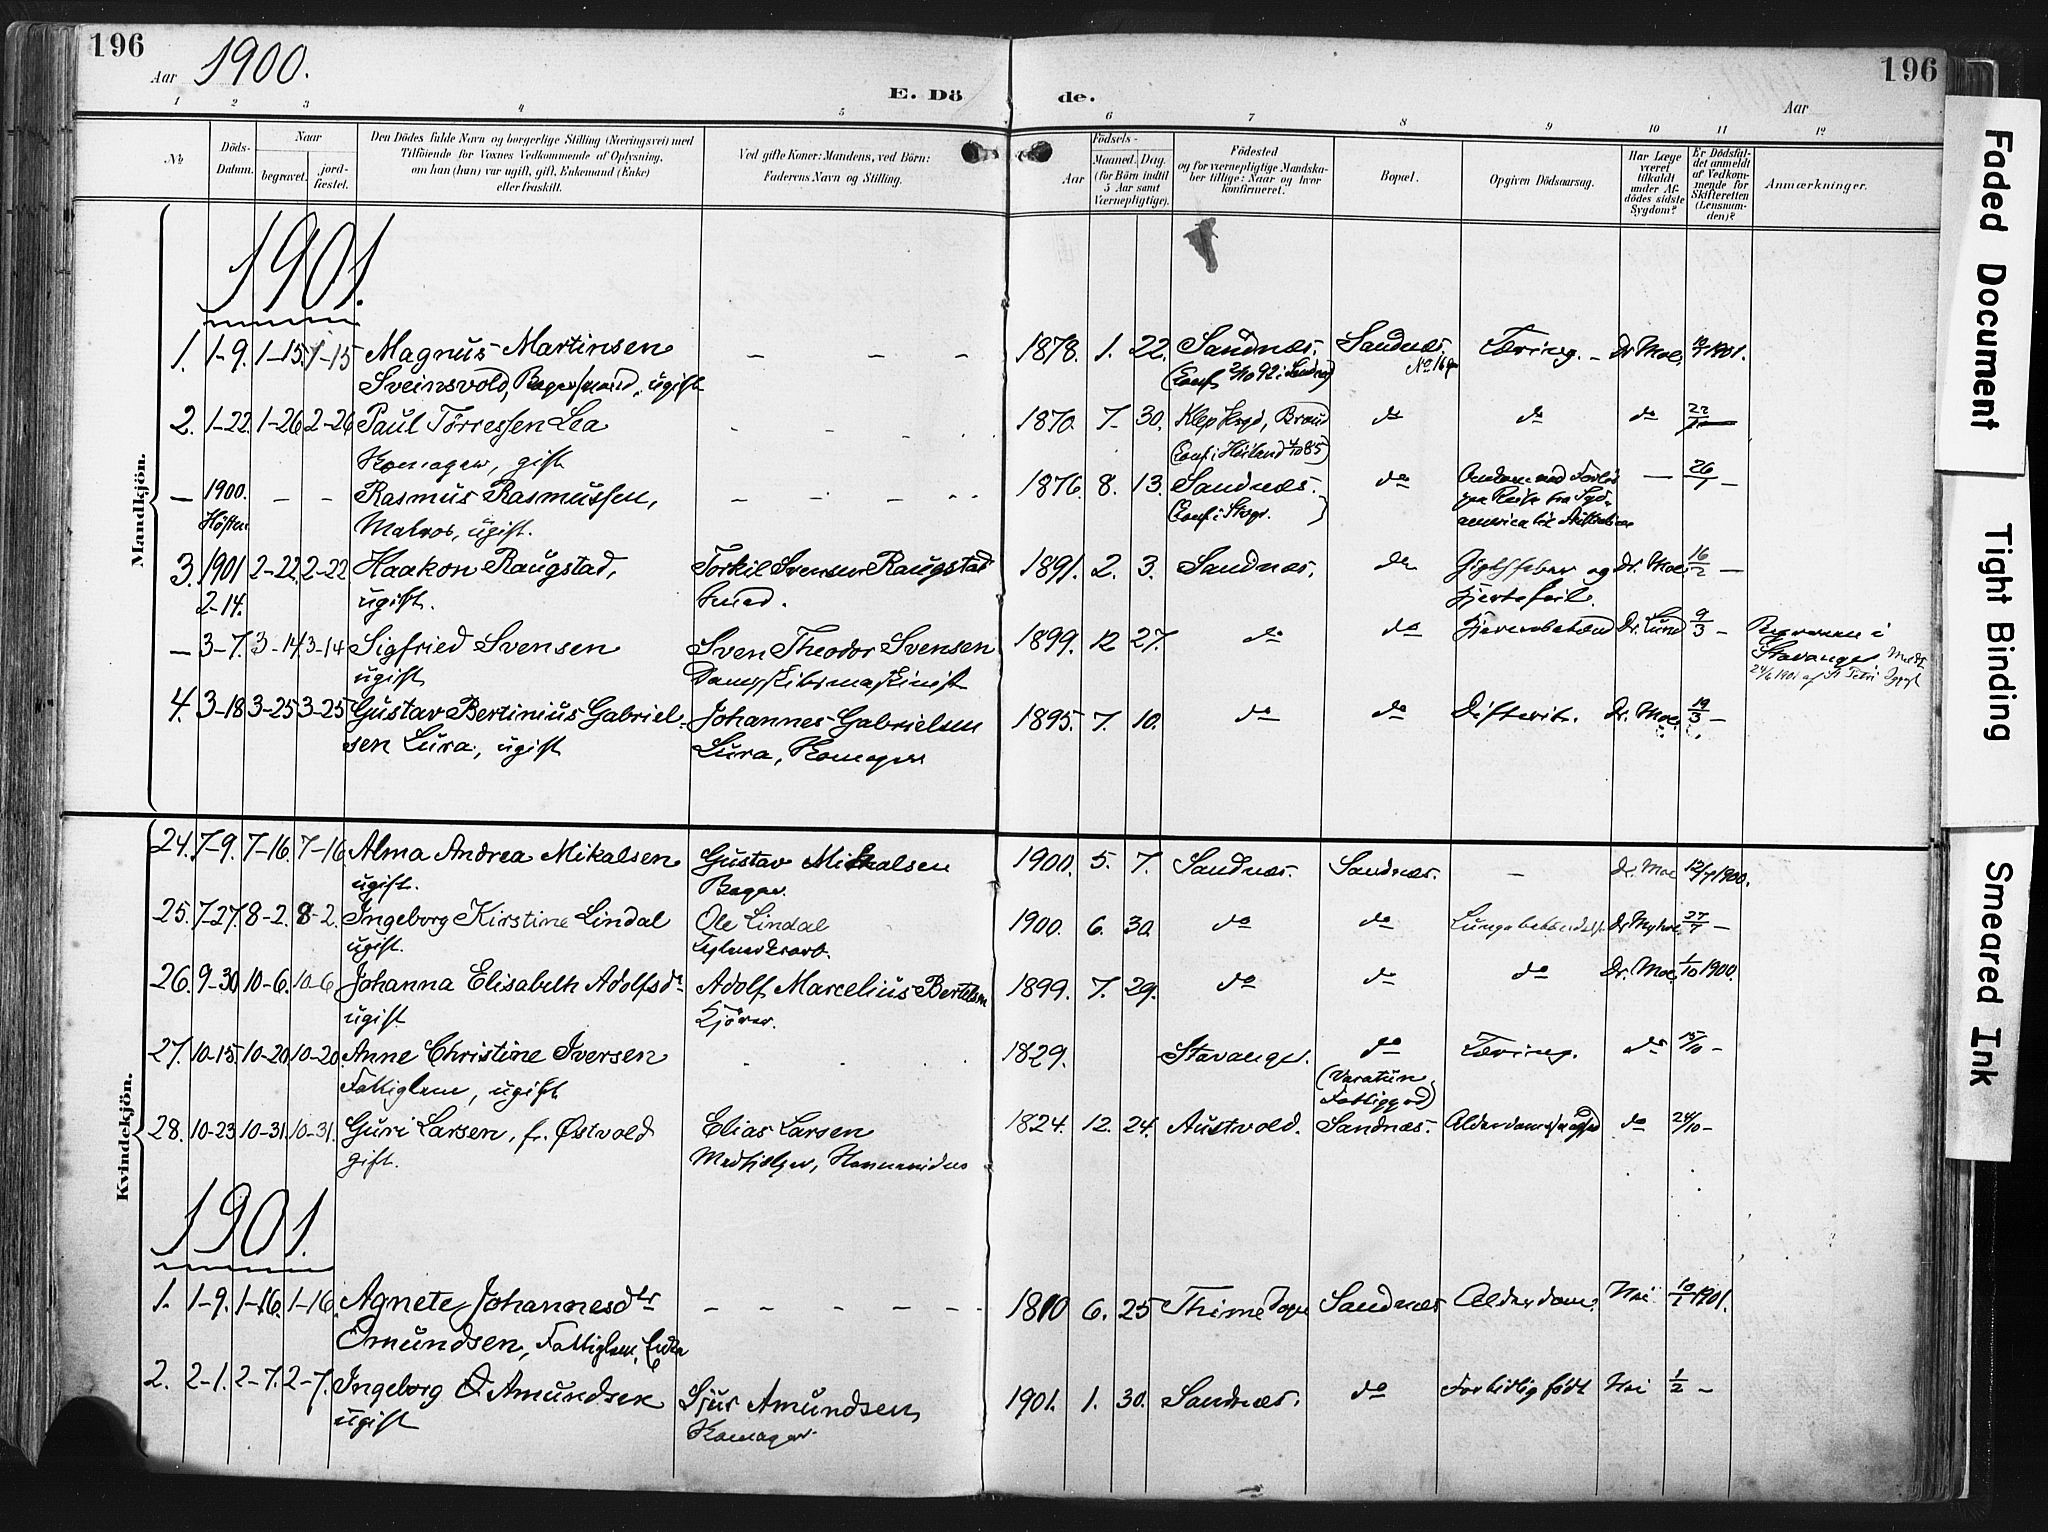 196
Aar 1900.
E. Dö
de.
Aar
196
1 2 3 4 5 6 7 8 9 10 11 12
No
Döds-Datum.
Naar
begravet.
jord-fæstet.
Den Dödes fulde Navn og borgerlige Stilling (Næringsvei) med
Tilföiende for Voxnes Vedkommende af Oplysning,
om han (hun) var ugift, gift, Enkemand (Enke)
eller fraskilt.
Ved gifte Koner: Mandens, ved Börn:
Faderens Navn og Stilling.
Födsels-
Aar
Maaned. Dag.
(for Börn indtil
5 Aar samt
Værnepligtige).
Födested
og for værnepligtige Mandska-
ber tillige: Naar og hvor
konfirmeret.
Bopæl.
Opgiven Dödsaarsag.
Har Læge
været
tilkaldt
under Af-
dödes sidste
Sygdom?
Er Dödsfal-
det anmeldt
af Vedkom-
mende for
Skifteretten
(Lensman-
den)?
Anmærkninger.
Mandkjön.
1901.
1. 1-9. 1-15. 1-15 Magnus Martinsen — — — 1878. 1. 22. Sandnæs. Sandnæs. Tæring. — Dr. Moe. 1901.
Sveinsvold, ugift
2. 1-22. 1-26 2-26 Paul Törressen Lea 1870. 7. 30. Klep do do do 22/1
Komager, gift
— 1900. — — Rasmus Rasmussen, — — 1876. 8. 13. Sandnæs. do — 26/1 —
Høsten Matros, ugift.
3. 1901 2-22 2-22 Haakon Raugstad, Torkil Svensen Raugstad 1891. 2. 3. Sandnæs. do Gigtfeber og Dr. Moe 16/2 —
2-14. ugift. Smed. Hjertefeil.
— 3-7. 3-14 3-14 Sigfried Svensen Sven Theodor Svensen 1899. 12 27. do do Dr. Lund 9/3 —
ugift Dampskibsmaskinist
Stavanger
4. 3-18 3-25 3-25 Gustav Bertinius Gabriel- Johannes Gabrielsen 1895. 7. 10. do do Difterit. Dr. Moe 19/3 —
sen Lura, ugift Lura, Komager
Kvindekjön.
24. 7-9. 7-16. 7-16. Alma Andrea Mikalsen Gustav Mikalsen 1900. 5. 7. Sandnæs. Sandnæs. — Dr. Moe 12/7 1900.
ugift. Bager.
25. 7-27. 8-2. 8-2. Ingeborg Kirstine Lindal Ole Lindal 1900. 6. 30. do do 27/7 —
ugift.
26. 9-30 10-6. 10-6. Johanna Elisabeth Adolfsdr Adolf Marcelius Bertelsen 1899. 7. 29. do do do Dr. Moe. 1/10 1900.
ugift Kjører.
27. 10-15 10-20. 10-20. Anne Christine Iversen 1829. Stavanger. do Tæring. do 15/10 —
Fattiglem, ugift (Varatun
Fattiggrd)
28. 10-23 10-31. 10-31. Guri Larsen, f. Østvold Elias Larsen 1824. 12. 24. Austvold. Sandnæs. do 24/10 —
gift.
1901.
1. 1-9. 1-16. 1-16. Agnete Johannesdtr — — — 1810 6. 25 Thime Sandnæs Alderdom. Nei 10/1 1901.
Omundsen, Fattiglem, Enke
2. 2-1. 2-7. 2-7. Ingeborg O. Amundsen Sjur Amundsen, 1901. 1. 30. Sandnæs. do Fortidlig født Nei 1/2 —
ugift Komager
Faded Document
Tight Binding
Smeared Ink